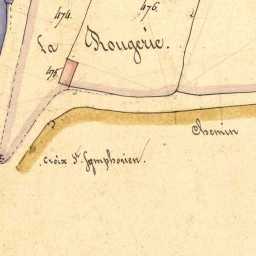 474.
476.
La Rougerie.
475.
Chemin
Croix St. Symphorien.